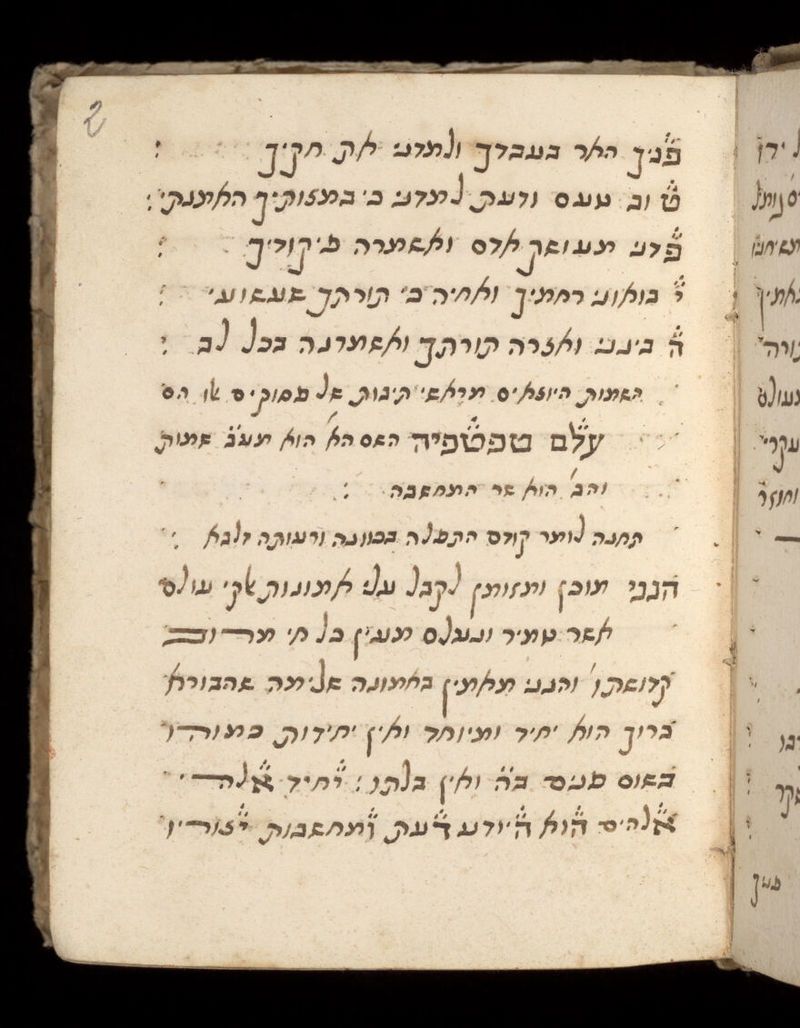 2
פניך האר בעבדך ולמדני את חקיך :
טוב טעם ודעת למדני כי במצותיך האמנתי :
פדני מעושק אדם ואשמרה פיקודיך :
יבואוני רחמיך ואחיה כי תורתך שעשועי :
הבינני ואצרה תורתך ואשמרנה בכל לב :
השמות היוצאים מראשי תיבות של פסוקים אלו הם
עלם טפטפיה השם הא' הוא מע"ב שמות
והב' הוא שר המחשבה :
תחנה לומר קודם התפלה בכוונה ורעותה דלבא :
הנני מוכן ומזומן לקבל עלי אמונות אלקי עולם
אשר טמיר ונעלם מעין כל חי
קדושתו' והנני מאמין באמונה שלימה שהבורא
ברוך הוא יחיד ומיוחד ואין יחידות כמוהו
בשום פנים ב"ה ואין בלתו : יחיד אלהי
אלהים הוא היודע דעת ומחשבות יצוריו